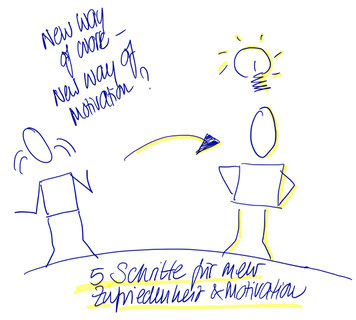 New way
of work –
New way of
Motivation?
5 Schritte für mehr
Zufriedenheit & Motivation